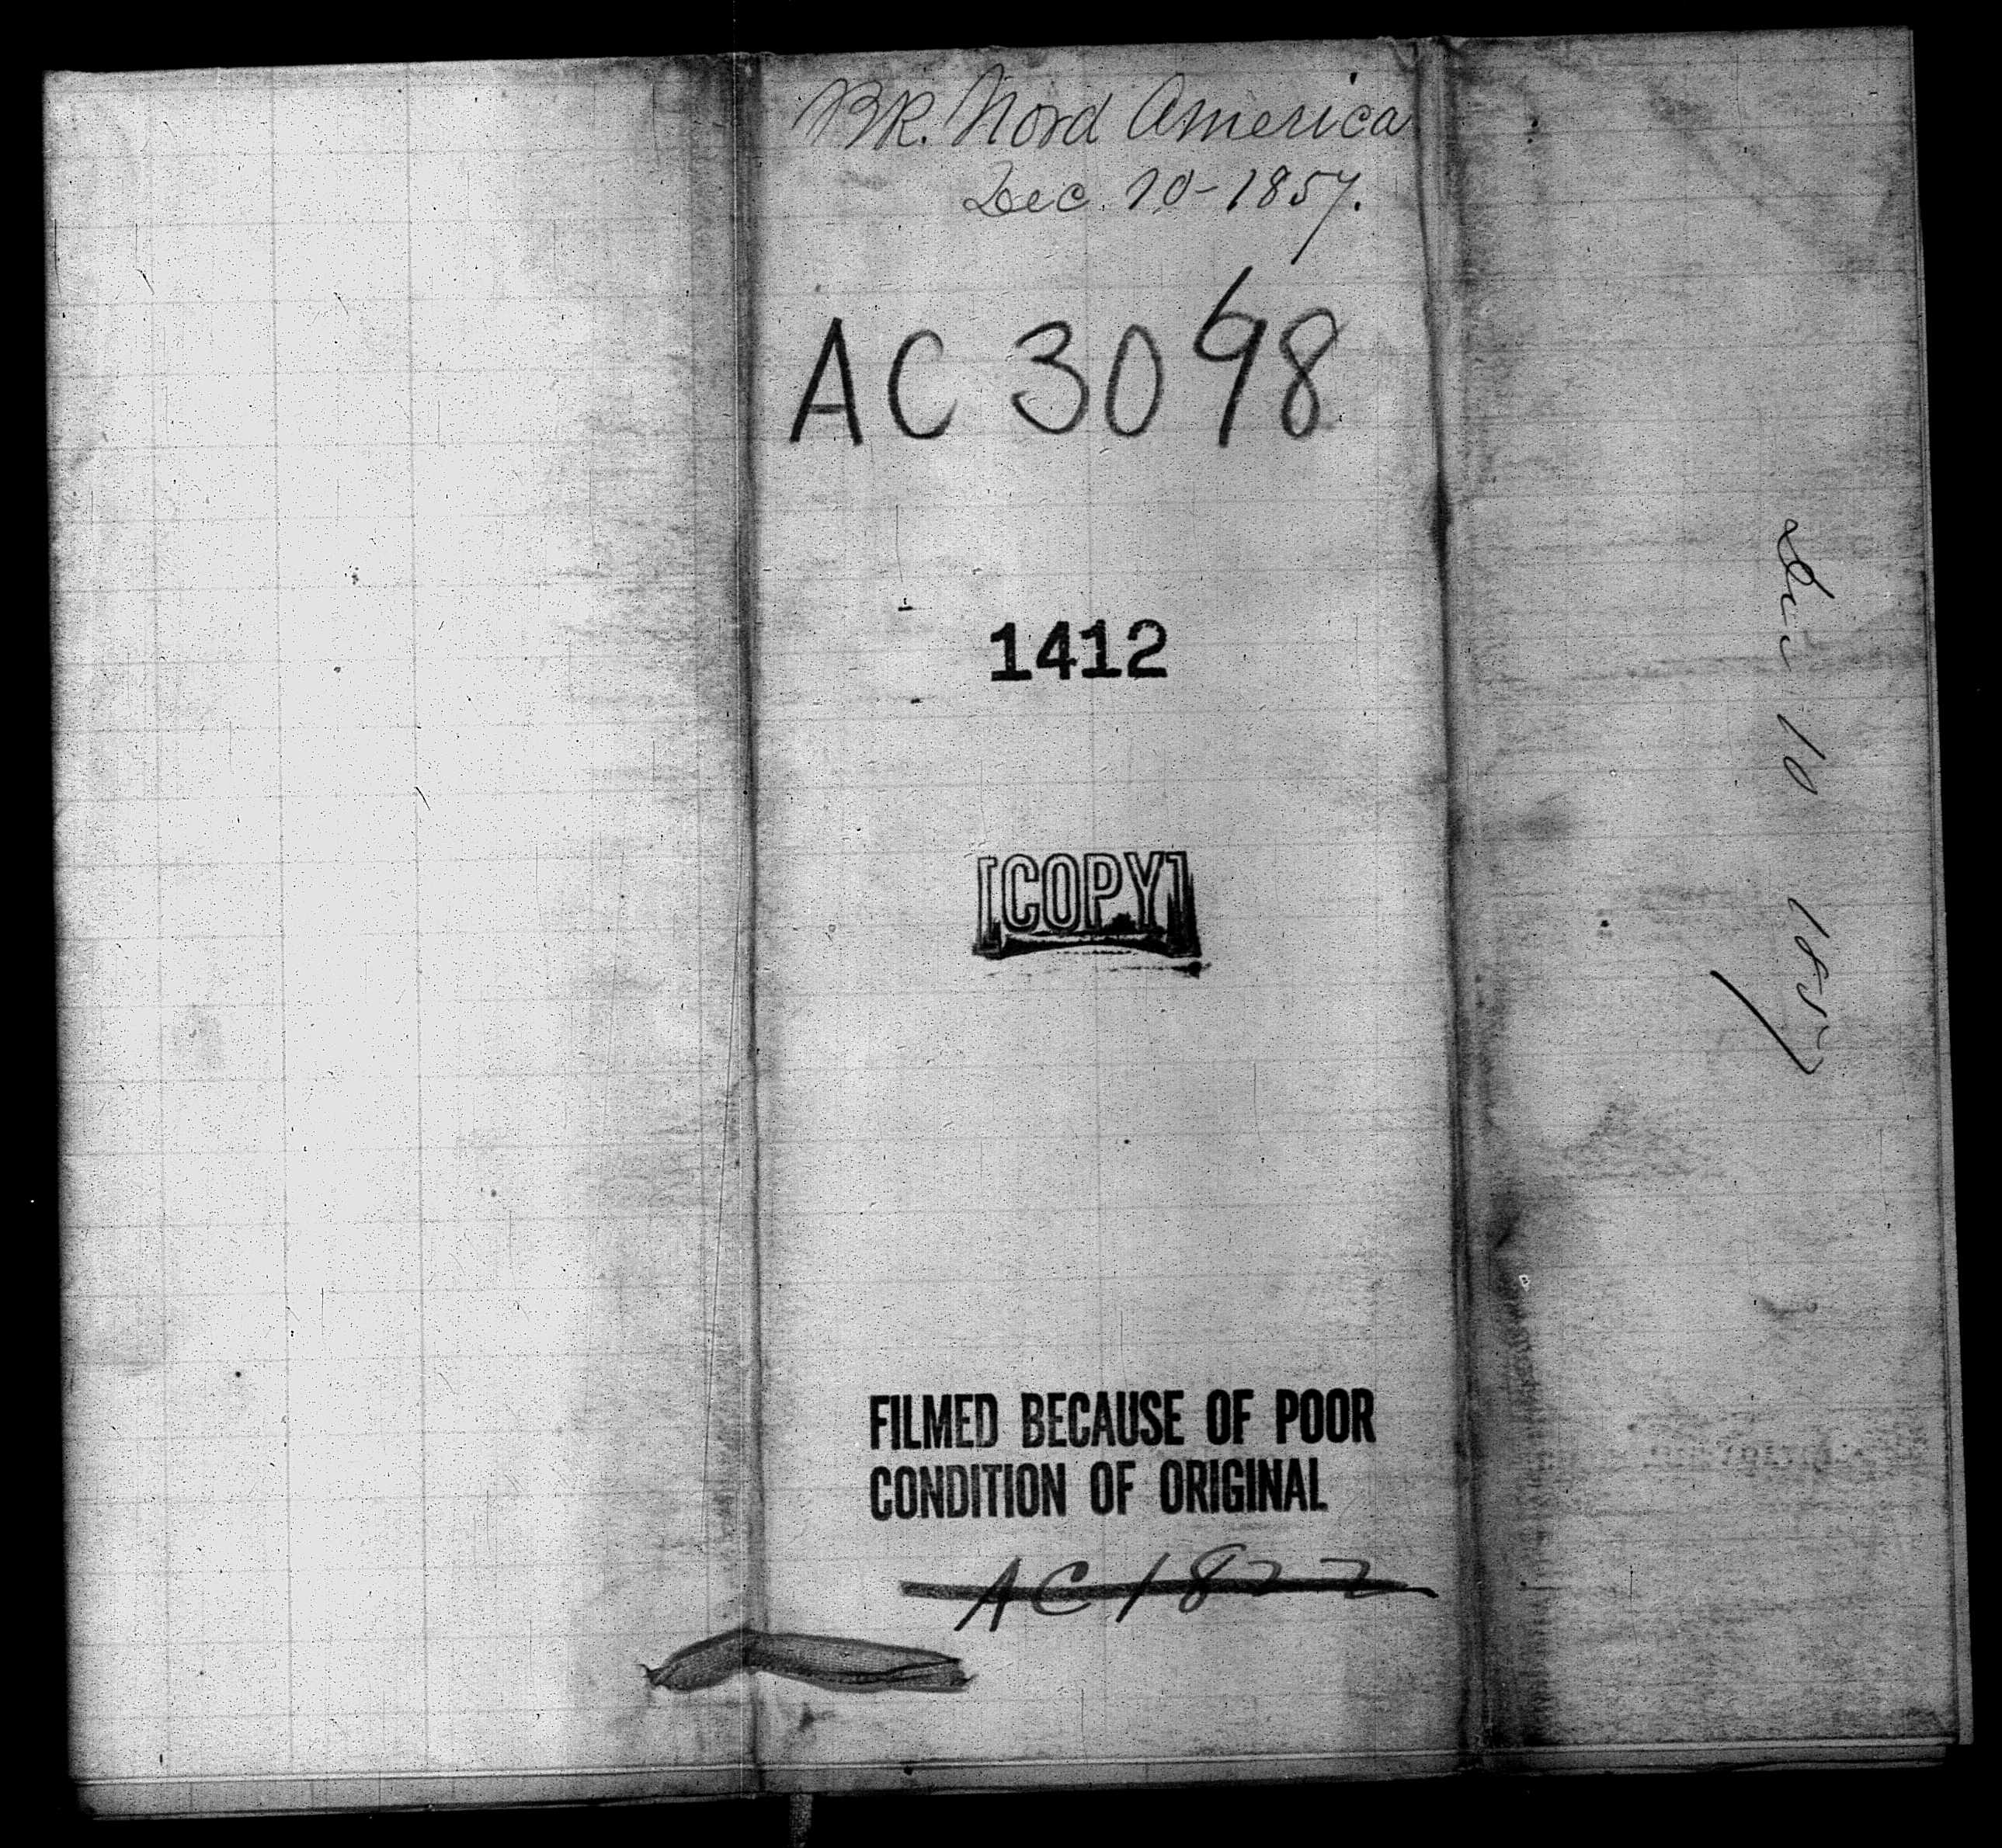 Bk. Nord America
Dec. 10-1857.
AC 3098
1412
[COPY]
FILMED BECAUSE OF POOR
CONDITION OF ORIGINAL
AC 1822
Dec 10 1857